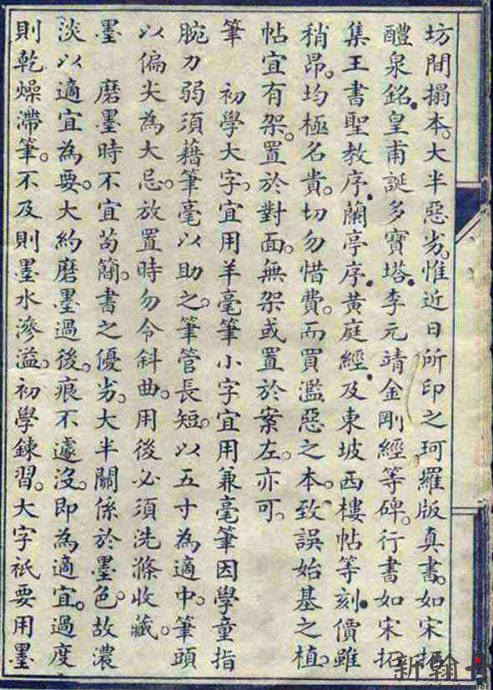 坊間搨本。大半惡劣。惟近日所印之珂羅版真書。如宋拓
醴泉銘。皇甫誕多寶塔。李元靖金剛經等碑。行書如宋拓
集王書聖教序。蘭亭序。黃庭經。及東坡西樓帖等刻。價雖
稍昂。均極名貴。切勿惜費。而買濫惡之本。致誤始基之植。
帖宜有架。置於對面。無架或置於案左。亦可。
筆　初學大字。宜用羊毫筆。小字宜用兼毫筆。因學童指
腕力弱。須藉筆毫以助之。筆管長短。以五寸為適中。筆頭
以偏尖為大忌。放置時勿令斜曲。用後必須洗滌收藏。
墨　磨墨時不宜苟簡。書之優劣。大半關係於墨色。故濃
淡以適宜為要。大約磨墨過後。痕不遽沒。即為適宜。過度
則乾燥滯筆。不及則墨水滲溢。初學鍊習。大字祇要用墨
新翰